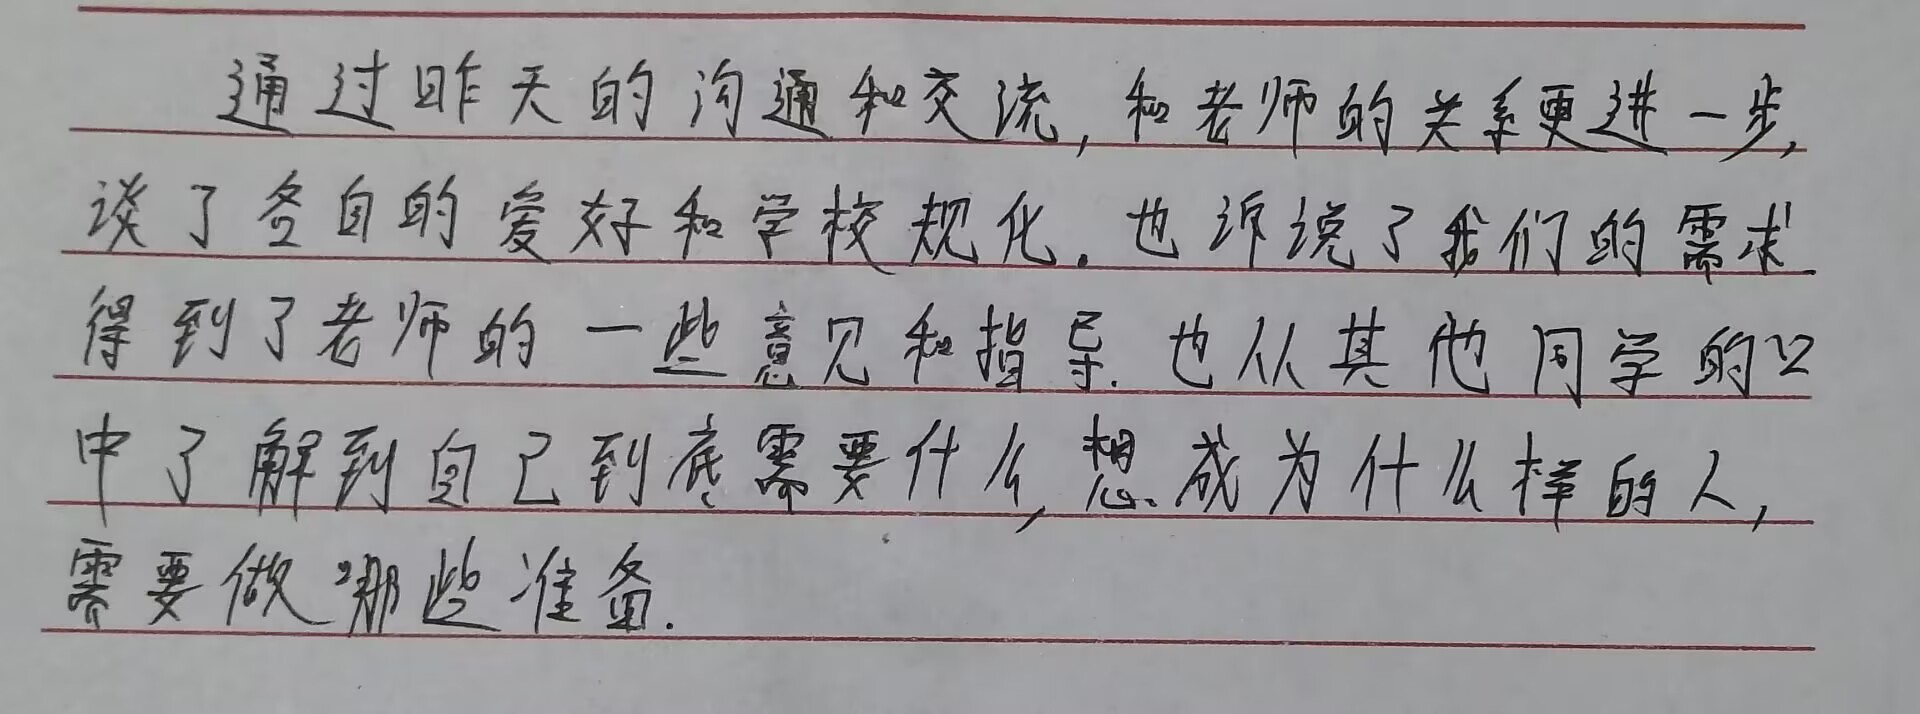 通过昨天的沟通和交流,和老师的关系更进一步,
谈了各自的爱好和学校规化.也诉说了我们的需求.
得到了老师的一些意见和指导.也从其他同学的口
中了解到自己到底需要什么,想成为什么样的人,
需要做哪些准备.